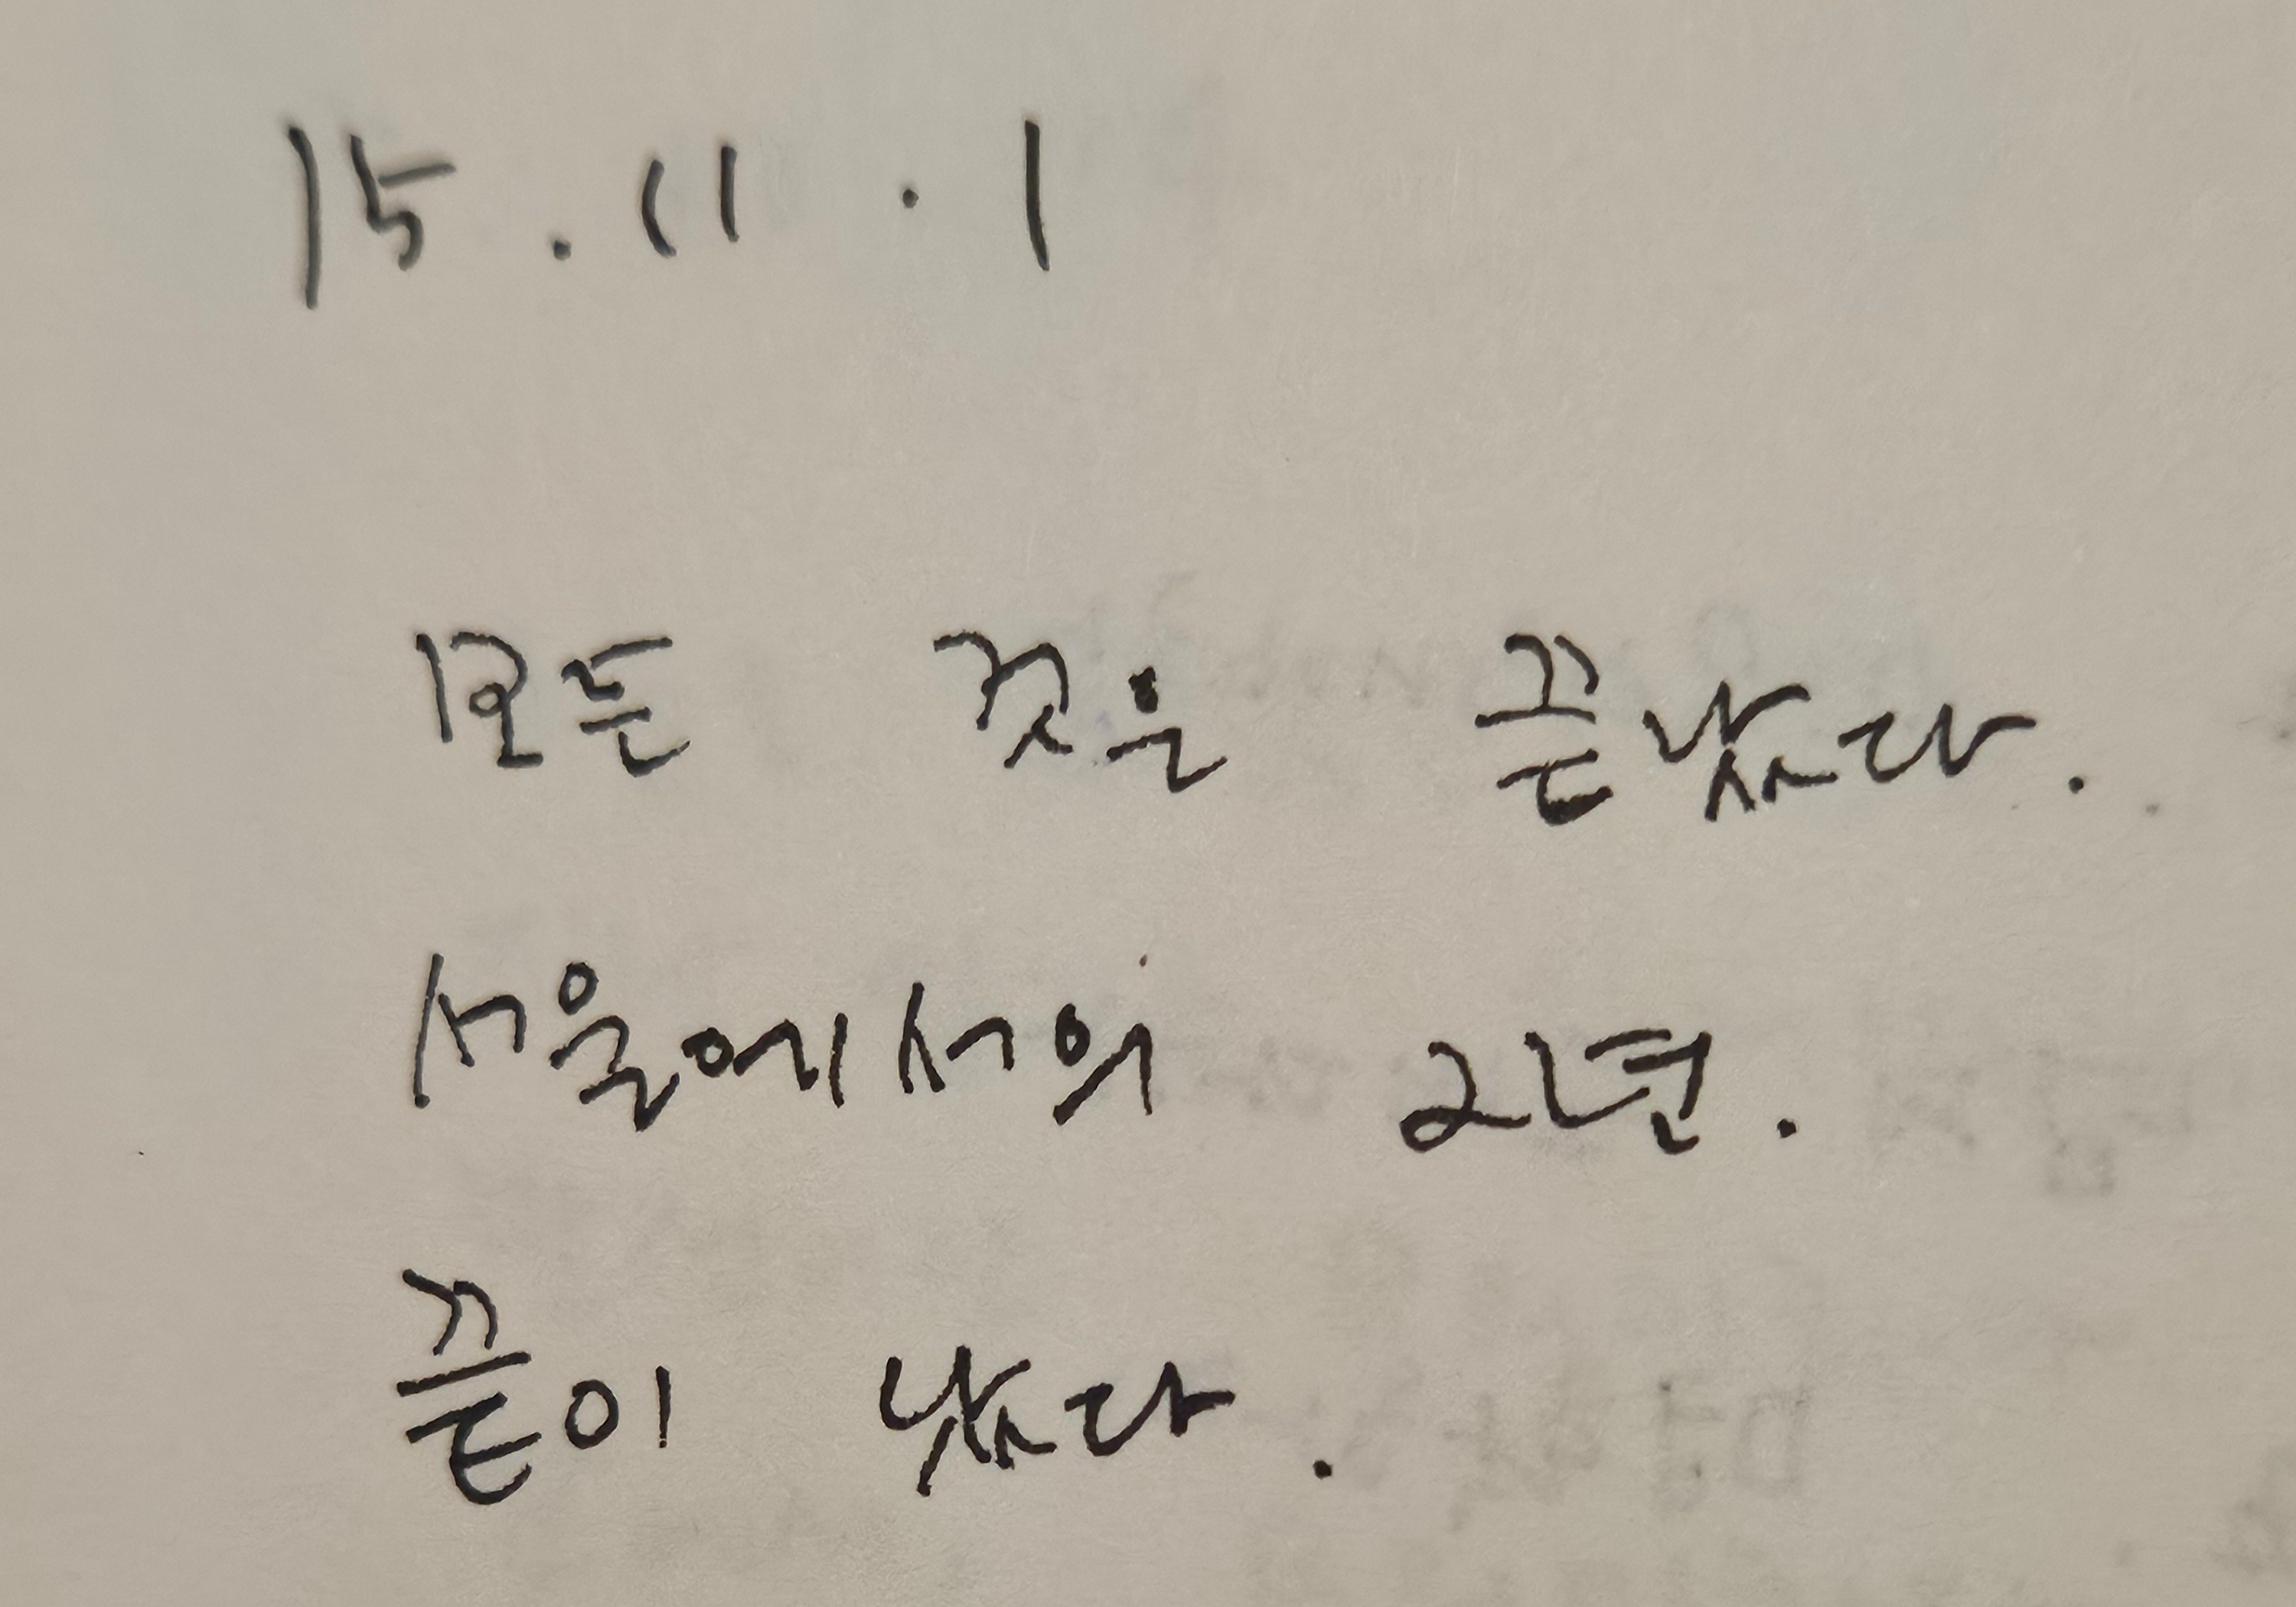 15.11.1
모든 것은 끝났다.
서울에서의 2년.
끝이 났다.